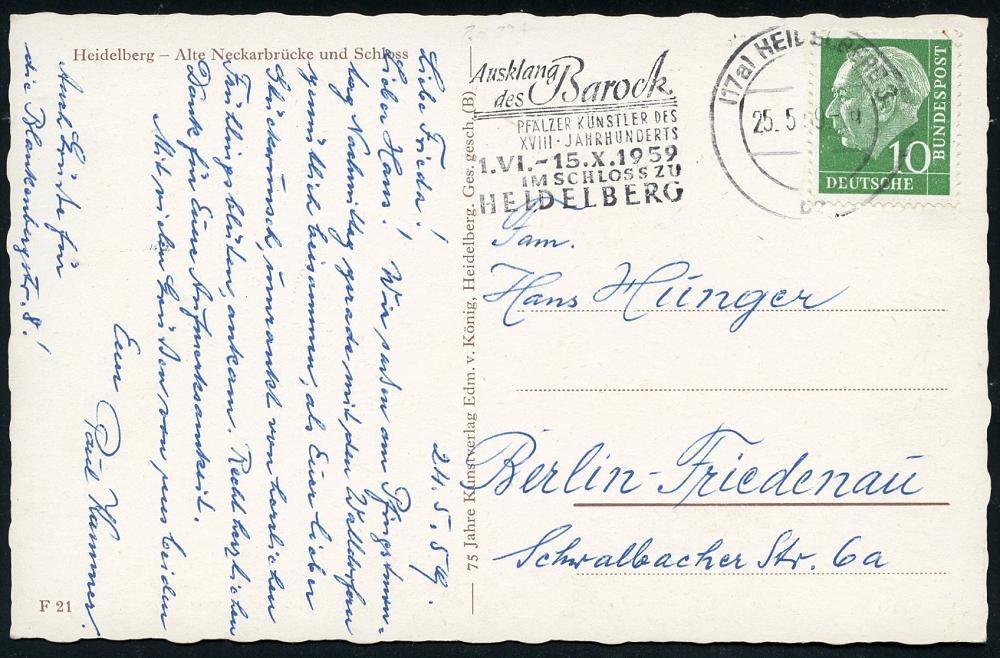 Heidelberg – Alte Neckarbrücke und Schloss
24. 5. 59.
Liebe Frieda!
Lieber Hans! Wir saßen am Pfingstmon-
tag Nachmittag gerade mit den Walldorfern
gemütlich beisammen, als Euer lieber
Glückwunsch, umrankt von herrlichen
Frühlingsblüten, ankam. Recht herzlichen
Dank für Eure Aufmerksamkeit.
Mit vielen Grüßen von uns beiden
Euer Paul Kammer.
Auch Grüße für
die Blankenbergstr. 8!
F 21
75 Jahre Kunstverlag Edm. v. König, Heidelberg, Ges. gesch. (B)
Ausklang
des Barock
PFÄLZER KÜNSTLER DES
XVIII. JAHRHUNDERTS
1.VI.–15.X.1959
IM SCHLOSS ZU
HEIDELBERG
(17a) HEIDELBERG
25. 5
10
DEUTSCHE
BUNDESPOST
Fam.
Hans Hünger
Berlin-Friedenau
Schwalbacher Str. 6a